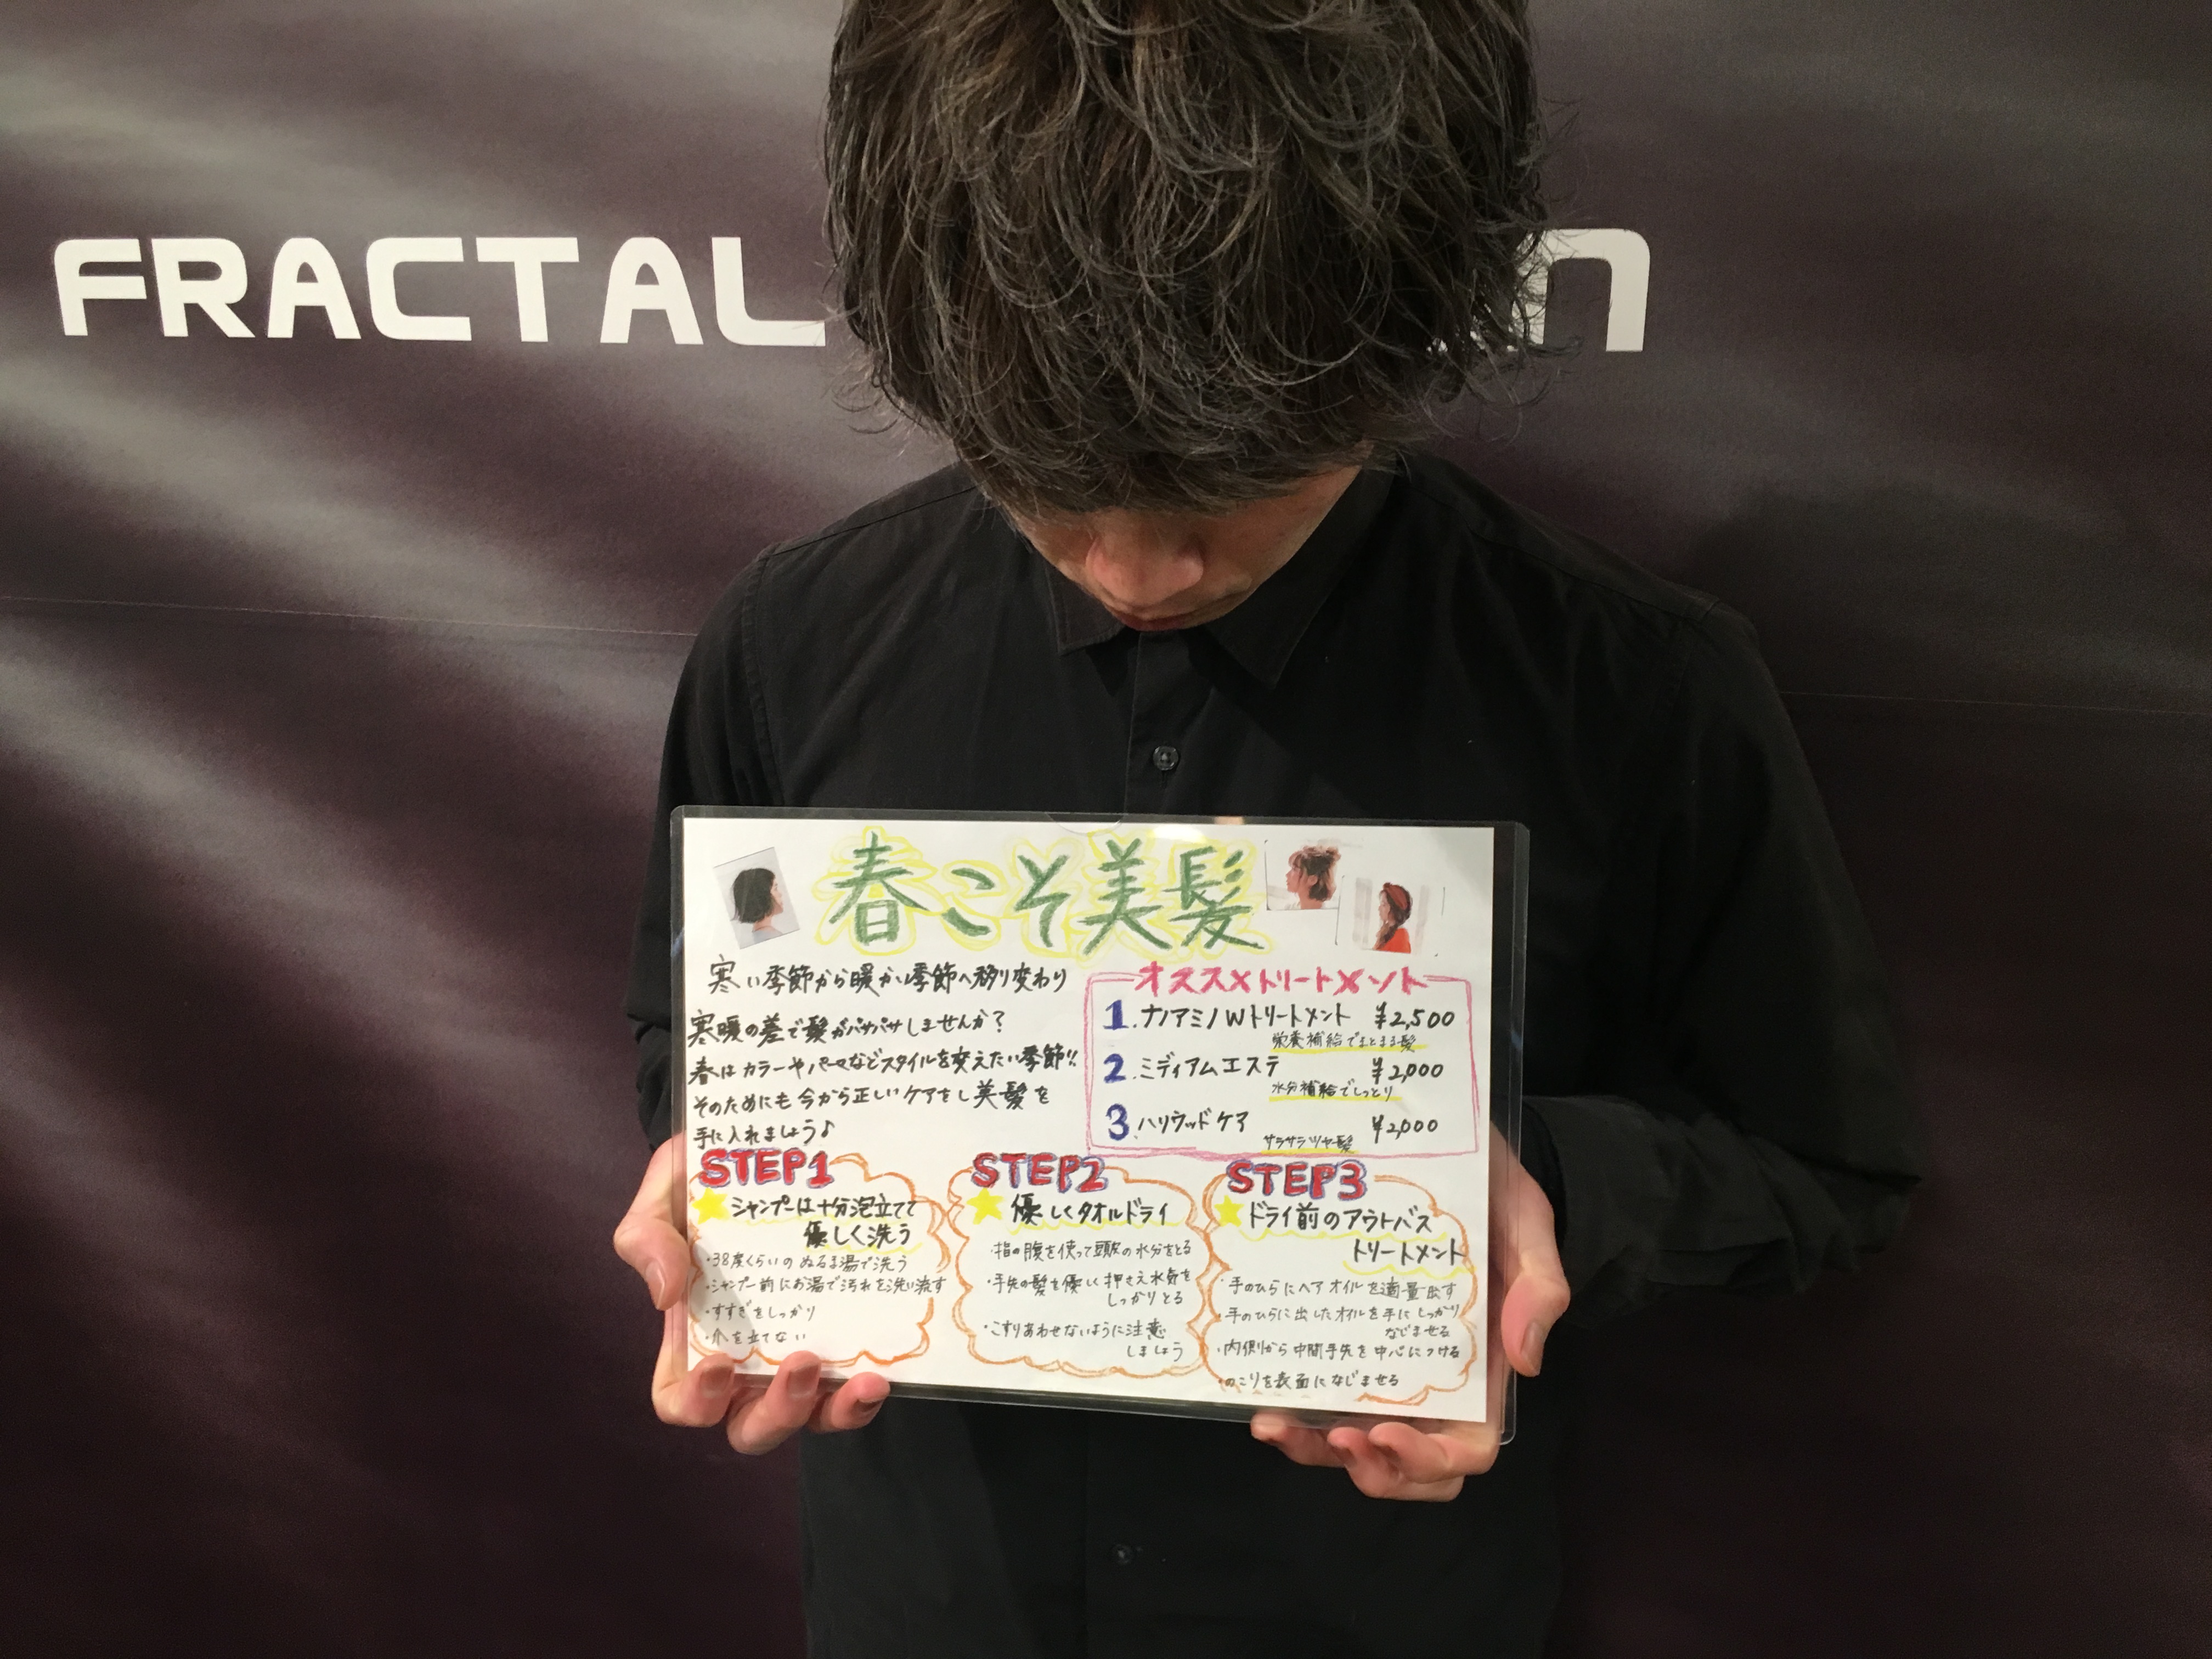 FRACTAL
n
春こそ美髪
寒い季節から暖かい季節へ移り変わり
寒暖の差で髪がパサパサしませんか?
春はカラーやパーマなどスタイルを変えたい季節!!
そのためにも今から正しいケアをし美髪を
手に入れましょう♪
オススメトリートメント
1.ナノアミノWトリートメント ¥2,500
栄養補給でまとまる髪
2.ミディアムエステ ¥2,000
水分補給でしっとり
3.ハリウッドケア ¥2,000
サラサラツヤ髪
STEP1
シャンプーは十分泡立てて
優しく洗う
・38度くらいのぬるま湯で洗う
・シャンプー前にお湯で汚れを洗い流す
・すすぎをしっかり
・爪を立てない
STEP2
優しくタオルドライ
・指の腹を使って頭皮の水分をとる
・毛先の髪を優しく押さえ水気を
しっかりとる
・こすりあわせないように注意
しましょう
STEP3
ドライ前のアウトバス
トリートメント
・手のひらにヘアオイルを適量出す
・手のひらに出したオイルを手にしっかり
なじませる
・内側から中間毛先を中心につける
・のこりを表面になじませる